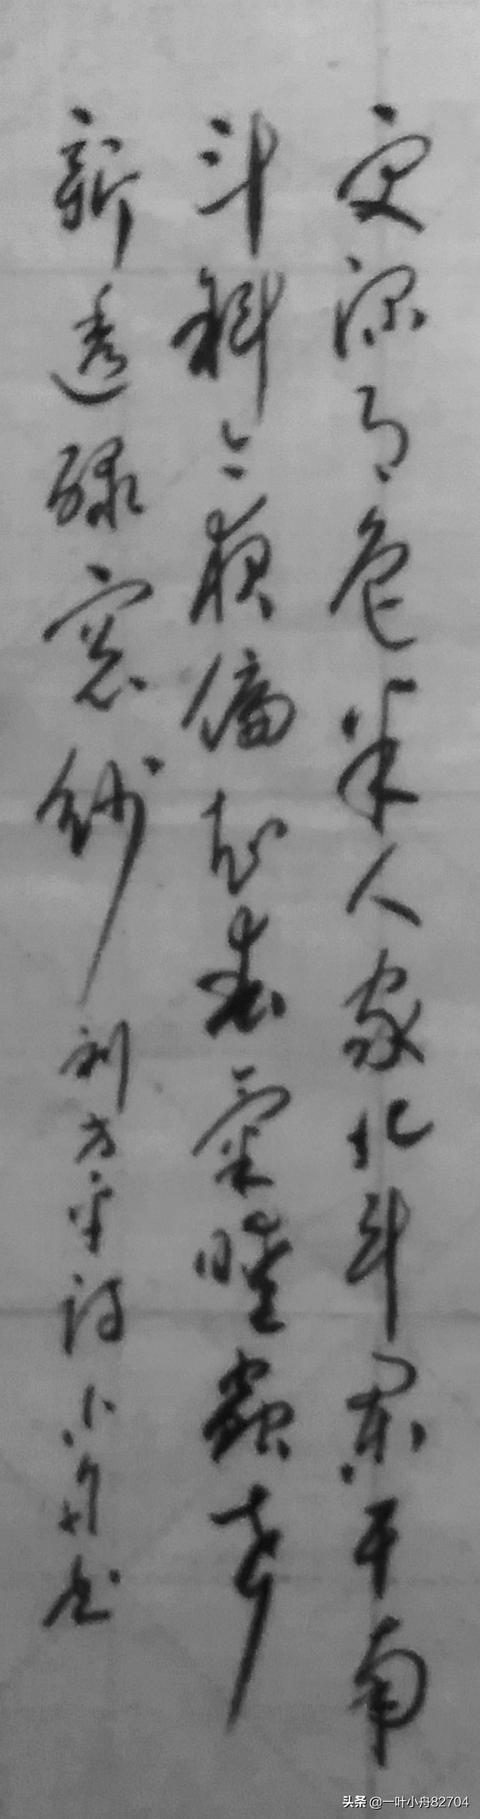 更深月色半人家北斗闌干南
斗斜今夜偏知春氣暖蟲聲
新透綠窗紗 刘方平诗 小舟书
头条 @一叶小舟82704